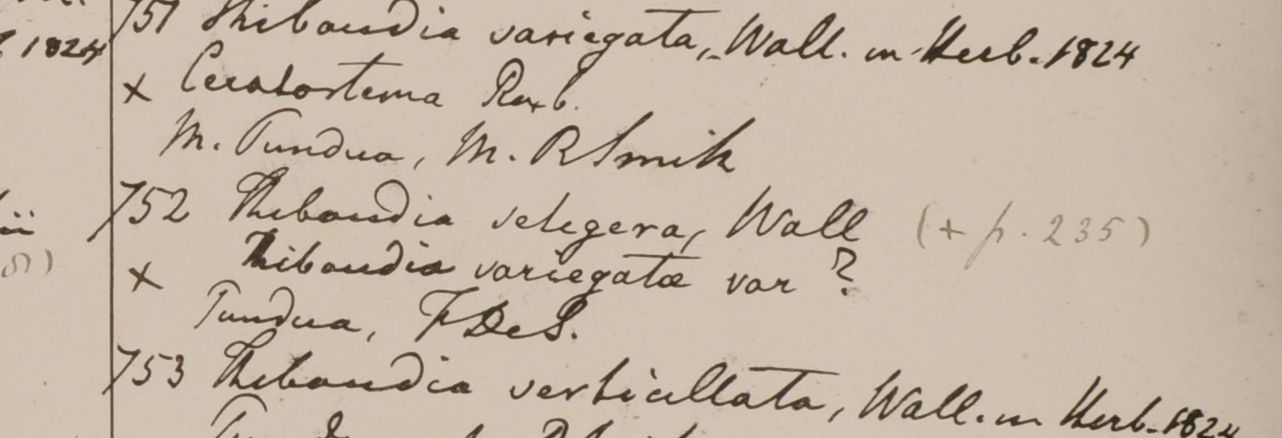 1824
751 Thibaudia variegata, Wall. in Herb. 1824
+ Ceratostema Roxb.
M. Pundua, M. R Smith
752 Thibaudia setigera, Wall (+ p. 235)
+ Thibaudia variegatæ var ?
Pundua, F De S.
753 Thibaudia verticillata, Wall. in Herb. 1824